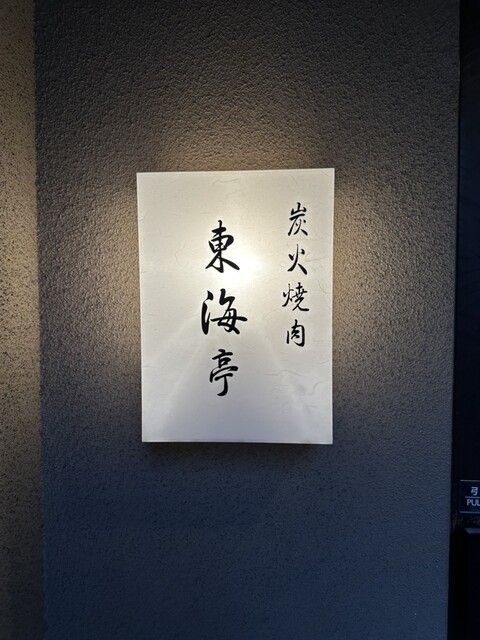 炭火焼肉
東海亭
PUL